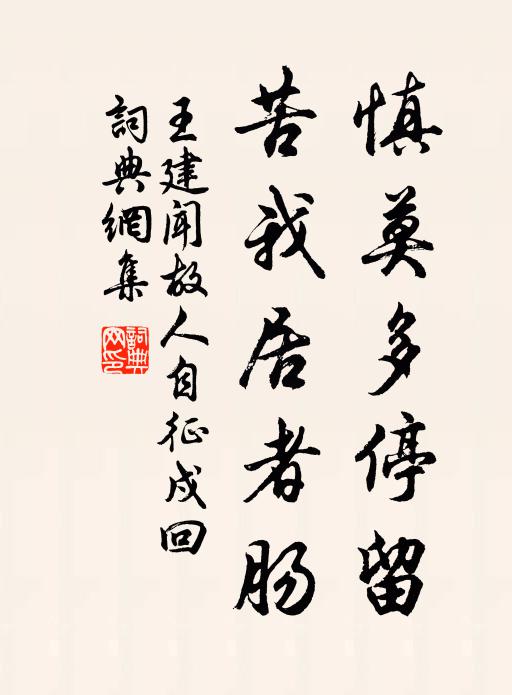 慎莫多停留
苦我居者肠
王建闻故人自征戍回
詞典網集
詞典
网印